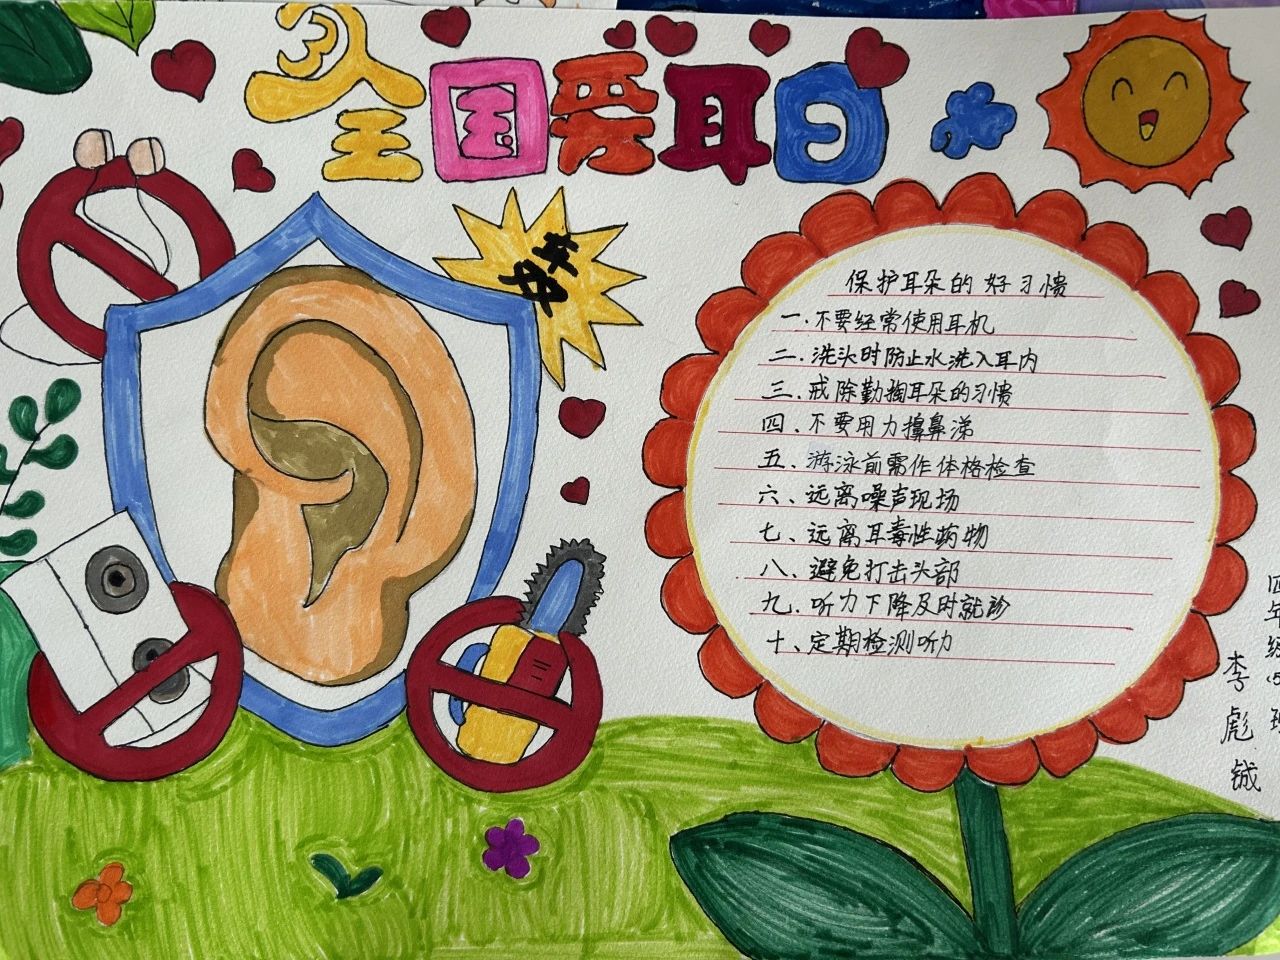 全国爱耳日
保护耳朵的好习惯
一.不要经常使用耳机
二.洗头时防止水洗入耳内
三.戒除勤掏耳朵的习惯
四、不要用力擤鼻涕
五、游泳前需作体格检查
六、远离噪声现场
七、远离耳毒性药物
八、避免打击头部
九.听力下降及时就诊
十、定期检测听力
李彪铖